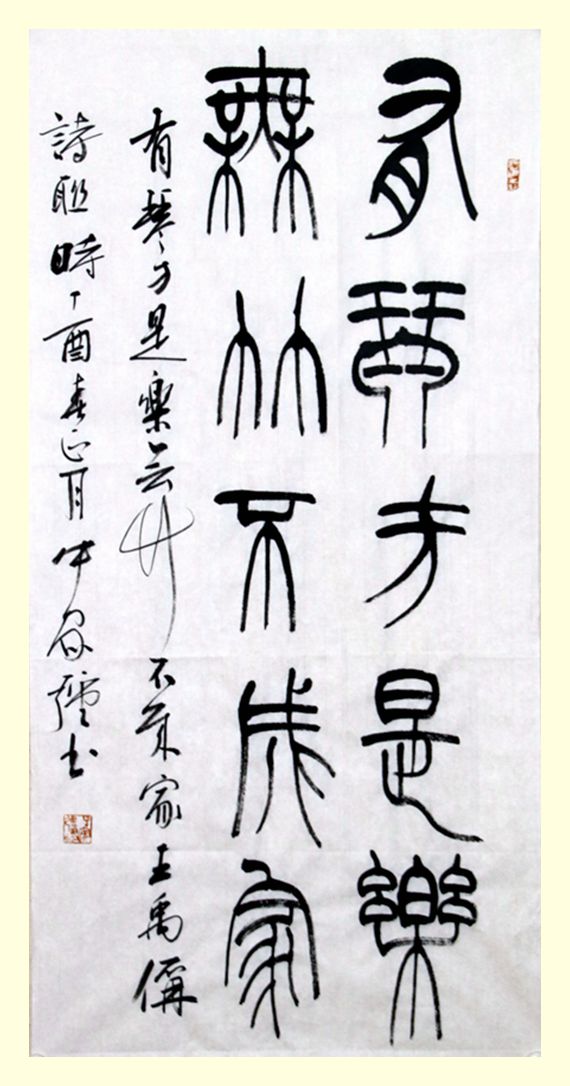 有琴方是樂
無竹不成家
有琴方是樂无竹不成家王禹偁
詩聯時丁酉春正月牛家书